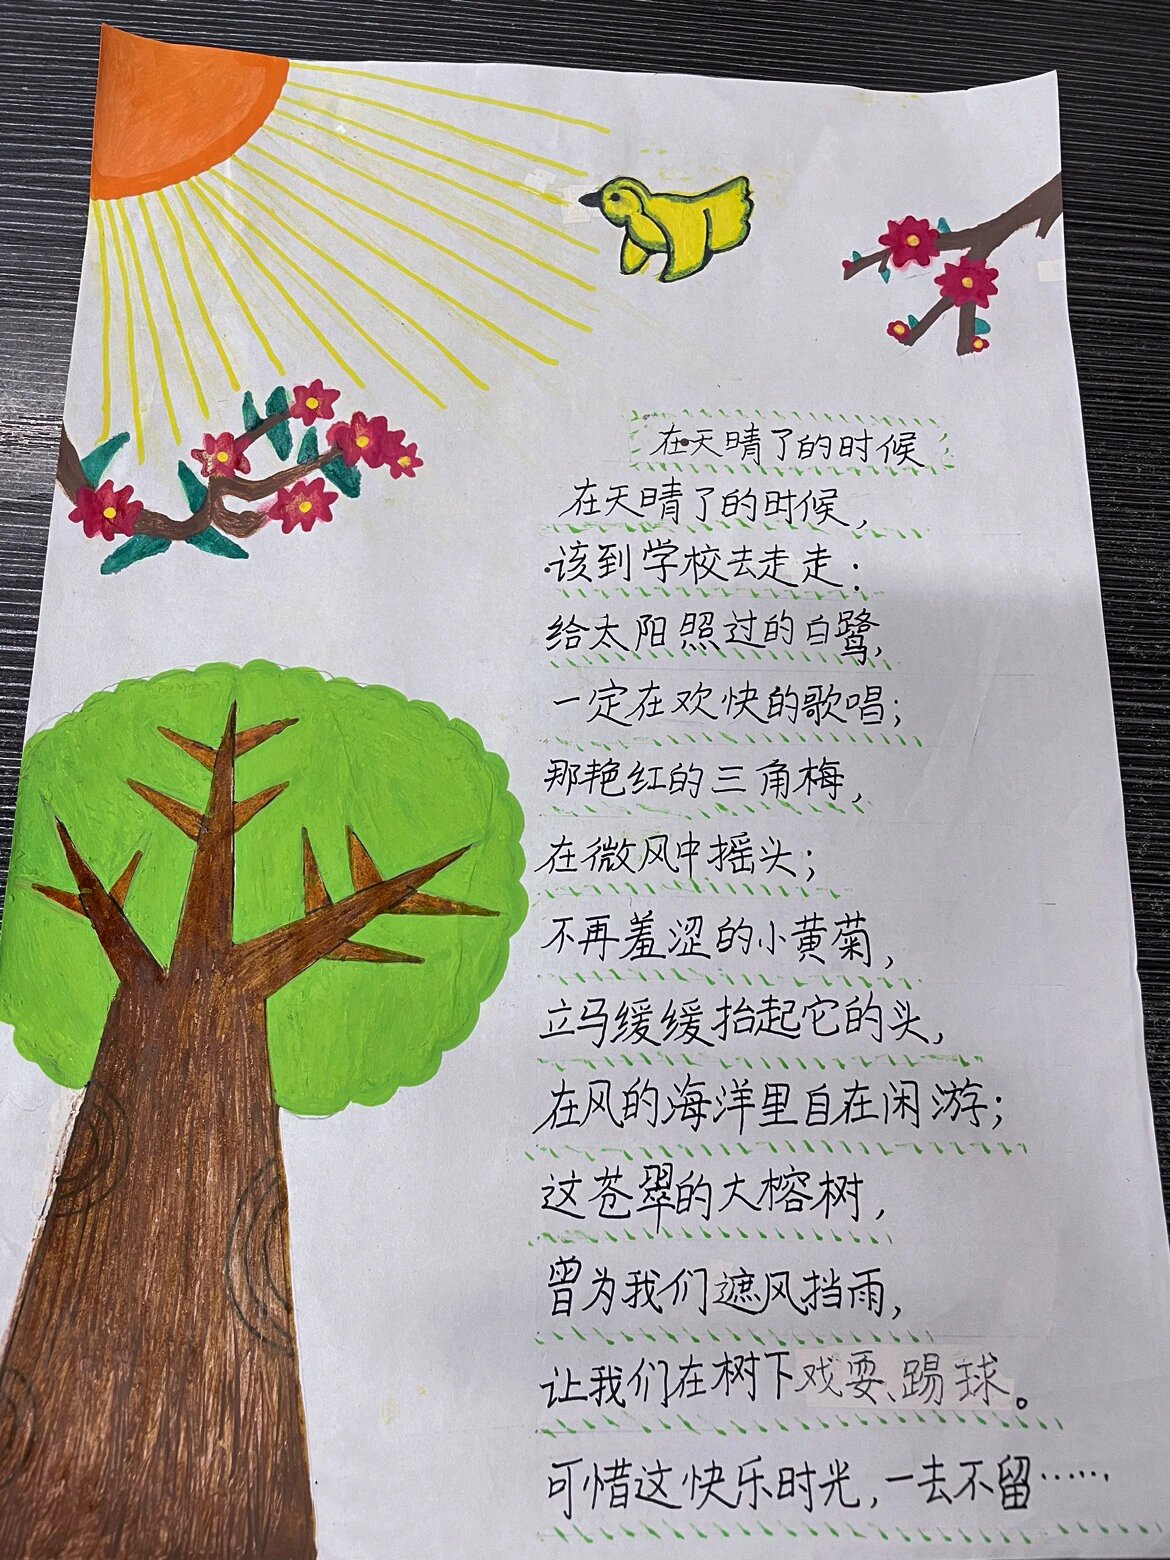 在天晴了的时候
在天晴了的时候,
该到学校去走走:
给太阳照过的白鹭,
一定在欢快的歌唱;
那艳红的三角梅,
在微风中摇头;
不再羞涩的小黄菊,
立马缓缓抬起它的头,
在风的海洋里自在闲游;
这苍翠的大榕树,
曾为我们遮风挡雨,
让我们在树下戏耍、踢球。
可惜这快乐时光,一去不留……